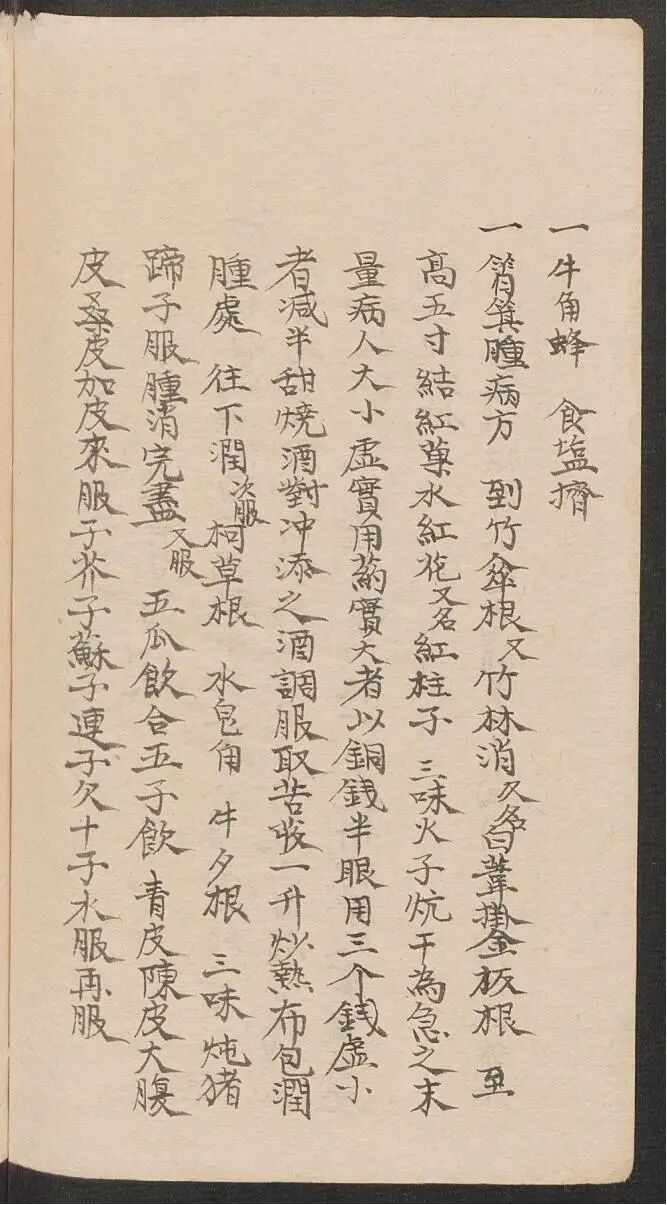 一牛角蜂　食塩擠
一筲箕腫病方　到竹傘根又竹林消又名白葦掛金板根　至
高五寸結紅菓水紅花又名紅柱子　三味火子炕干為急之末
量病人大小虛實用葯實大者以銅銭半眼用三个銭虛小
者減半甜燒酒對冲添之酒調服取苦蕎一升炒熱布包潤
腫處　往下潤次服柯草根　水皂角　牛夕根　三味炖猪
蹄子服腫消完盡又服　五瓜飲合五子飲　青皮陳皮大腹
皮桑皮加皮來服子芥子蘇子連子欠十子水服再服